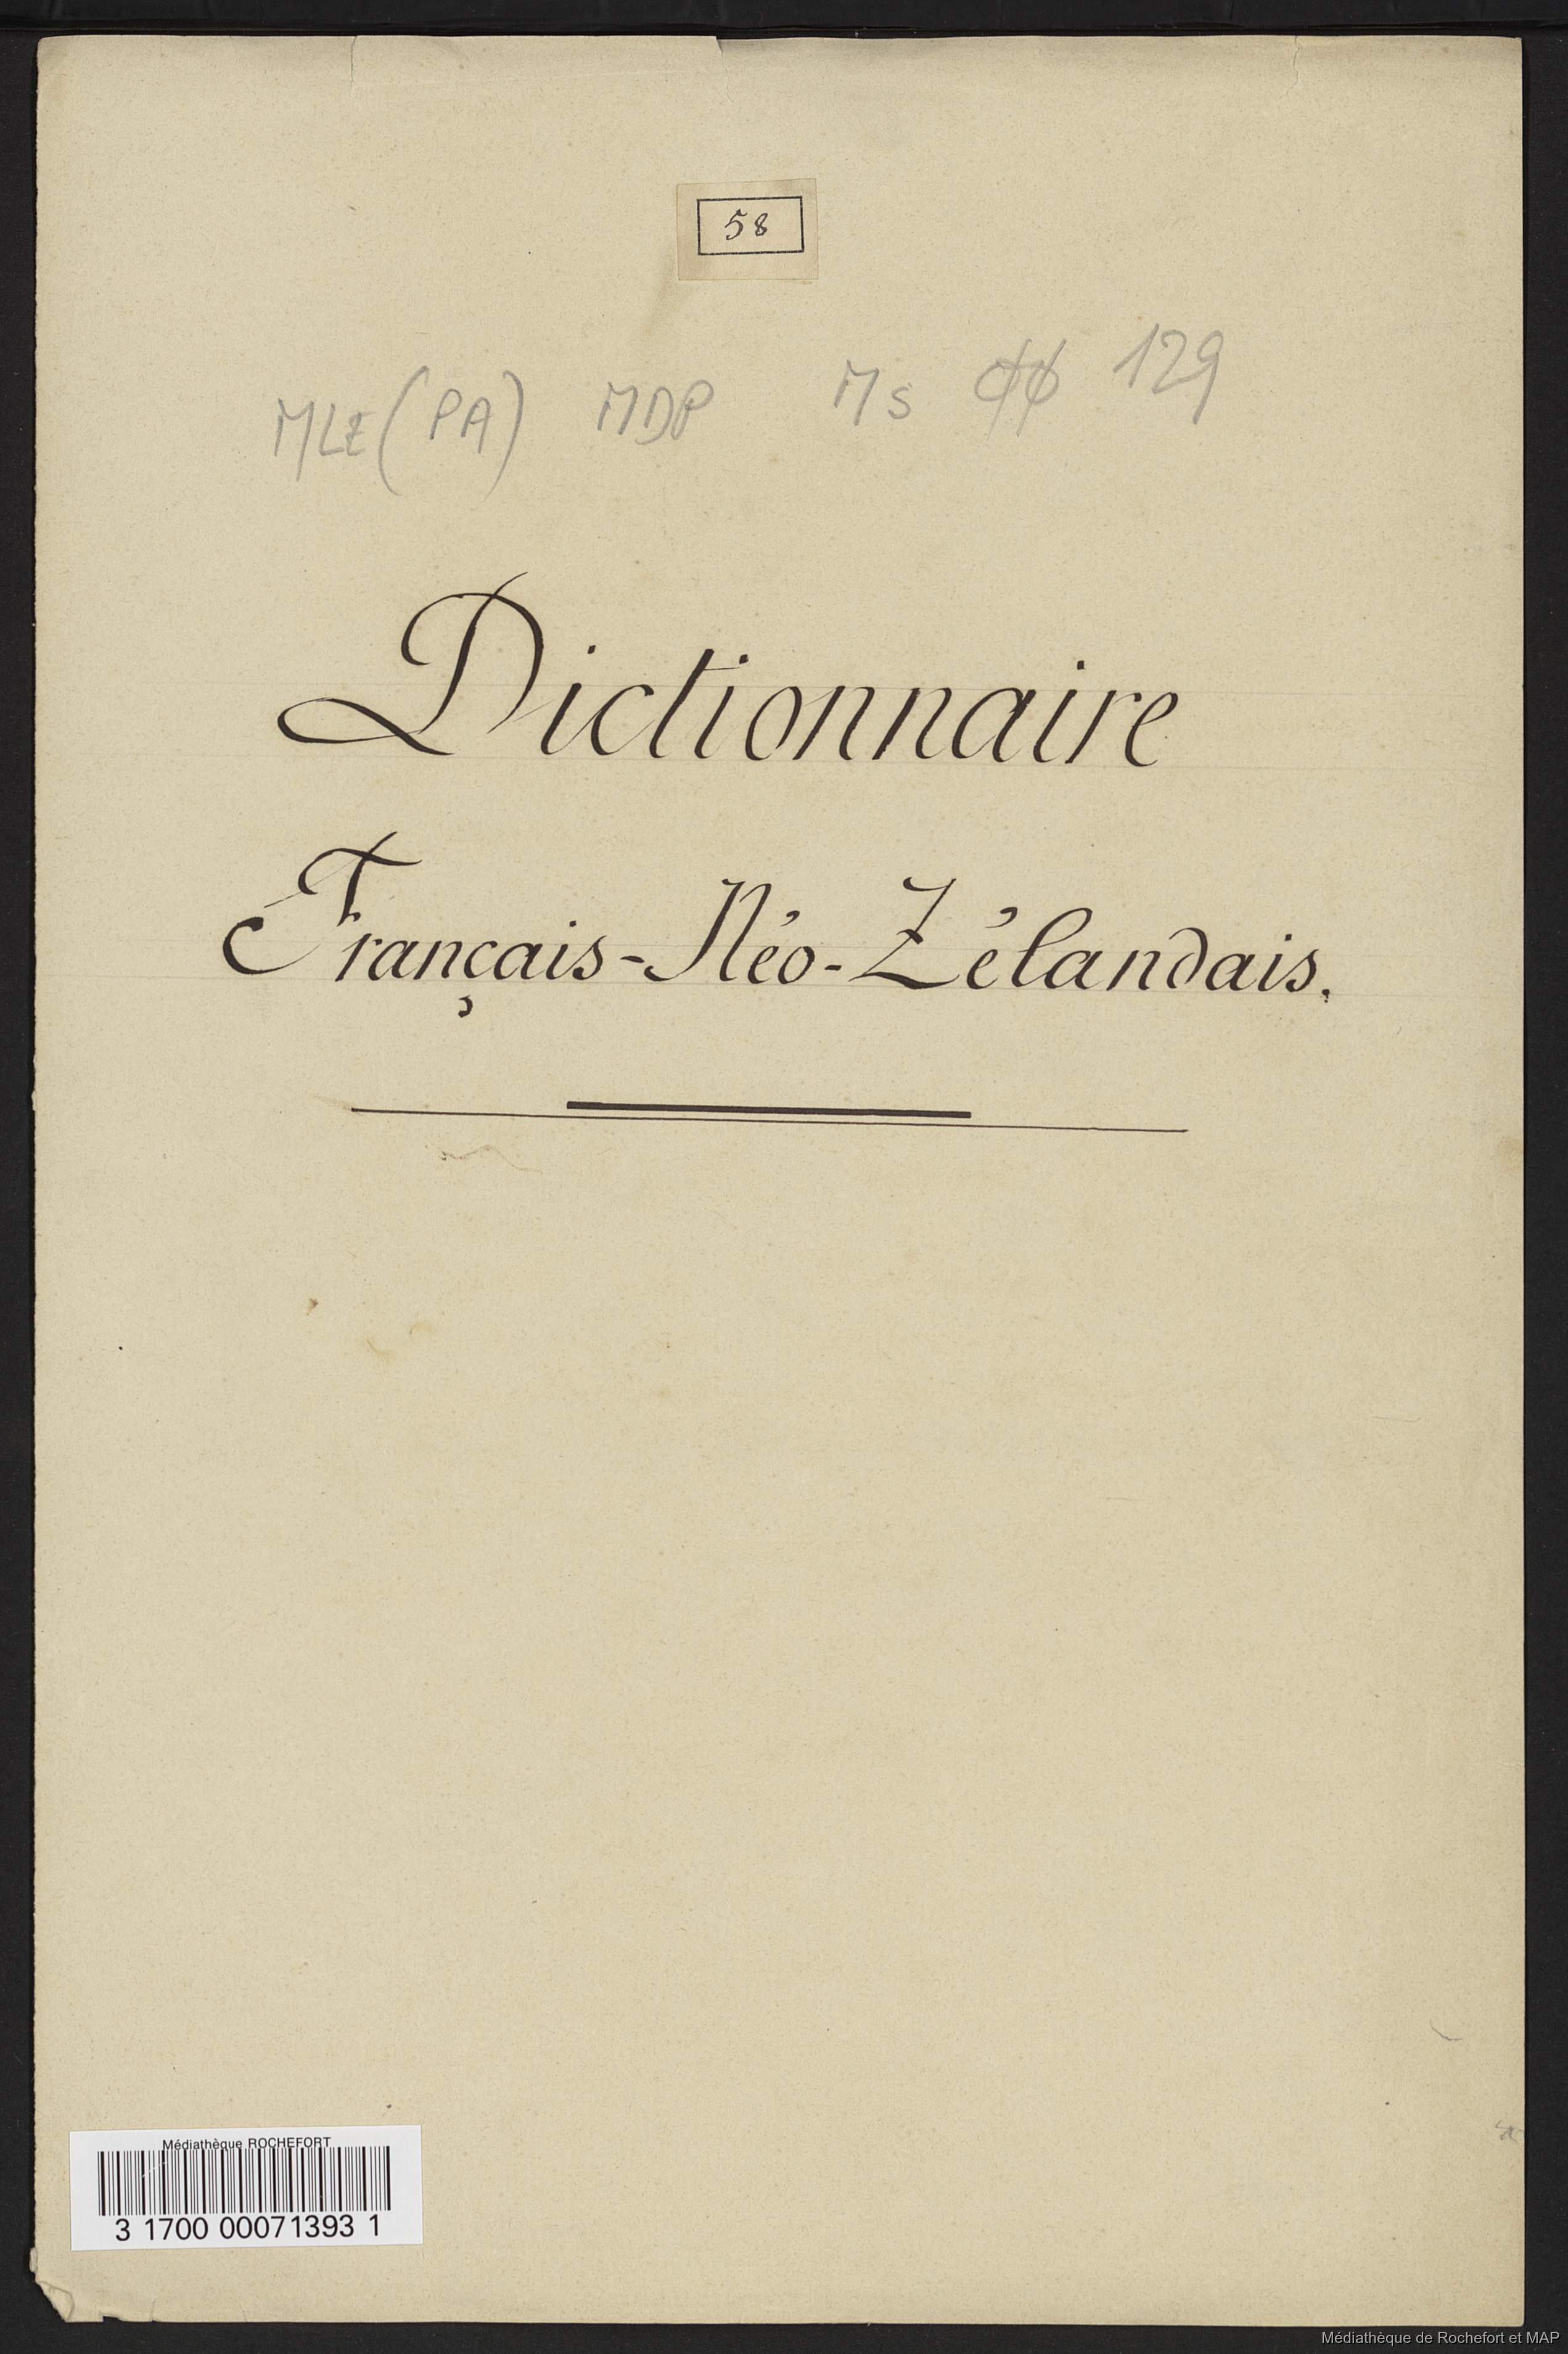 58
MLE (PA) MDP Ms 129
Dictionnaire
Français-Néo-Zélandais.
Médiathèque ROCHEFORT
3 1700 00071393 1
Médiathèque de Rochefort et MAP